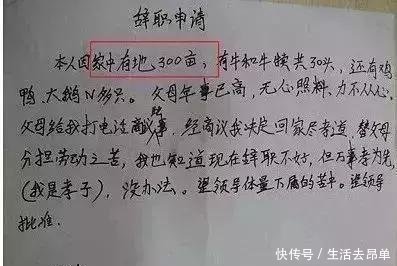 辞职申请
本人因家中有地300亩,有牛和牛犊共30头,还有鸡
鸭、大鹅N多只。父母年事已高,无人照料、力不从心。
父母给我打电话商议此事,经商议我决定回家尽孝道,替父母
分担劳动之苦,我也知道现在辞职不好,但万事孝为先
(我是孝子),没办法。望领导体量下属的苦衷。望领导
批准.
快传号/生活去昂单